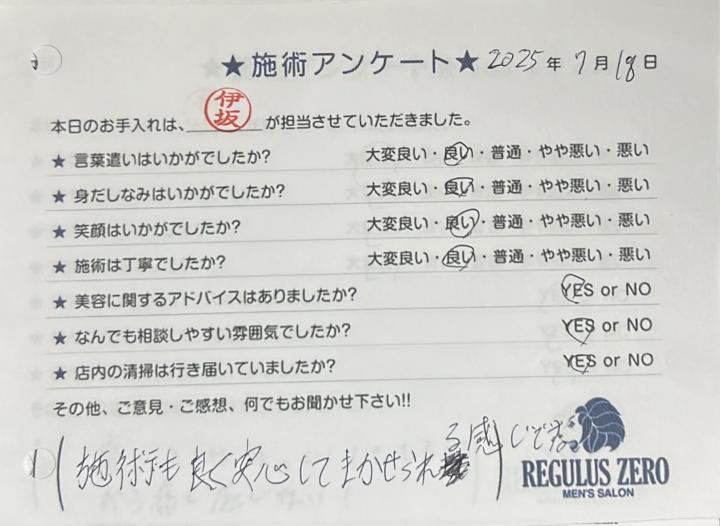 ★施術アンケート★ 2025年7月18日
本日のお手入れは、伊坂が担当させていただきました。
★ 言葉遣いはいかがでしたか? 大変良い・良い・普通・やや悪い・悪い
★ 身だしなみはいかがでしたか? 大変良い・良い・普通・やや悪い・悪い
★ 笑顔はいかがでしたか? 大変良い・良い・普通・やや悪い・悪い
★ 施術は丁寧でしたか? 大変良い・良い・普通・やや悪い・悪い
★ 美容に関するアドバイスはありましたか? YES or NO
★ なんでも相談しやすい雰囲気でしたか? YES or NO
★ 店内の清掃は行き届いていましたか? YES or NO
その他、ご意見・ご感想、何でもお聞かせ下さい!!
施術も良く安心してまかせられる感じです
REGULUS ZERO
MEN'S SALON